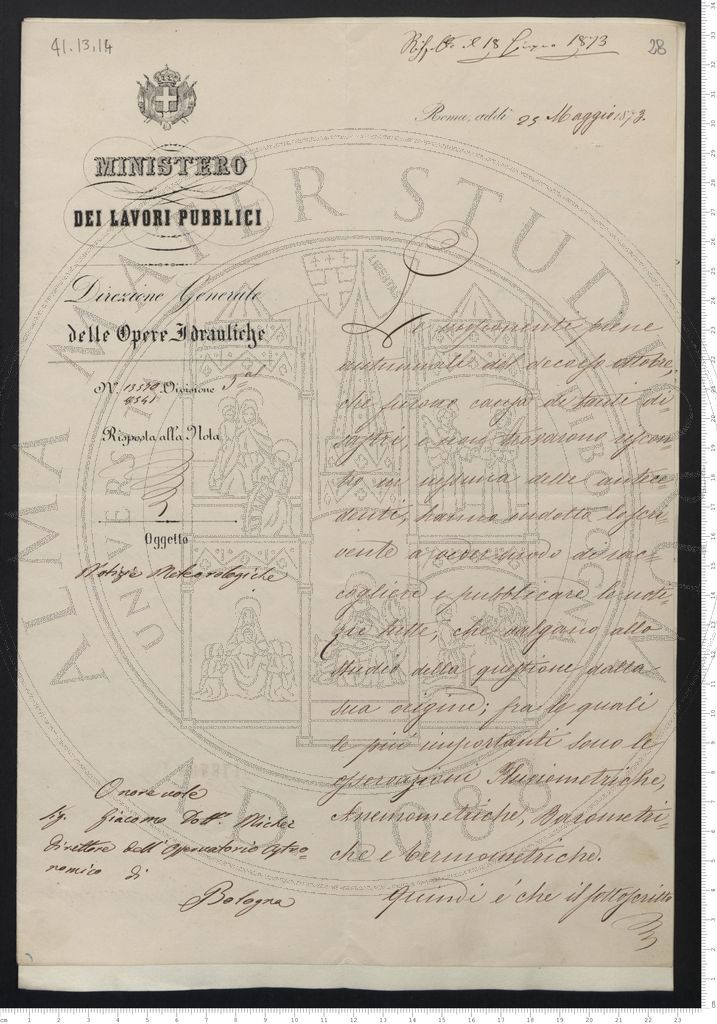 41.13.14
28
il 18 Giugno 1873
Roma, addì 25 Maggio 1873.
MINISTERO
DEI LAVORI PUBBLICI
Direzione Generale
delle Opere Idrauliche
N. Divisione 5
Risposta alla Nota
Oggetto
Notizie Meteorologiche
Onorevole
Sig. Giacomo Dott.
Direttore dell'Osservatorio Astro-
nomico di
Bologna
Le piene
autunnali del decorso ottobre,
che furono causa di tanti di-
sastri, e non trovarono riscon-
tro in nessuna delle antece-
denti, hanno indotto lo scri-
vente a veder modo di rac-
cogliere e pubblicare le noti-
zie tutte, che valgano allo
studio della questione dalla
sua origine; fra le quali
le più importanti sono le
osservazioni Pluviometriche,
Anemometriche, Barometri-
che e termometriche.
Quindi è che il sottoscritto
ALMA MATER STUDIORUM
A.D. 1088
LIBERTAS